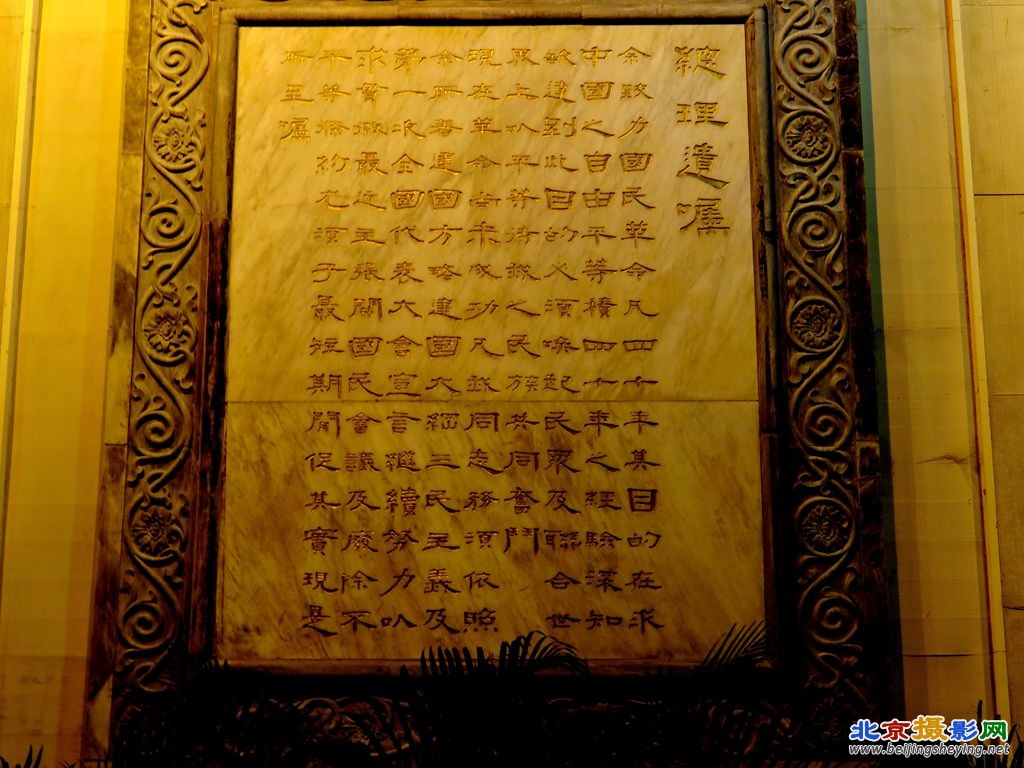 總理遺囑
余致力國民革命凡四十年其目的在求
中國之自由平等積四十年之經驗深知
欲達到此目的必須喚起民眾及聯合世
界上以平等待我之民族共同奮鬥
現在革命尚未成功凡我同志務須依照
余所著建國方略建國大綱三民主義及
第一次全國代表大會宣言繼續努力以
求貫澈最近主張開國民會議及廢除不
平等條約尤須于最短期間促其實現是
所至囑
北京摄影网
www.beijingsheying.net